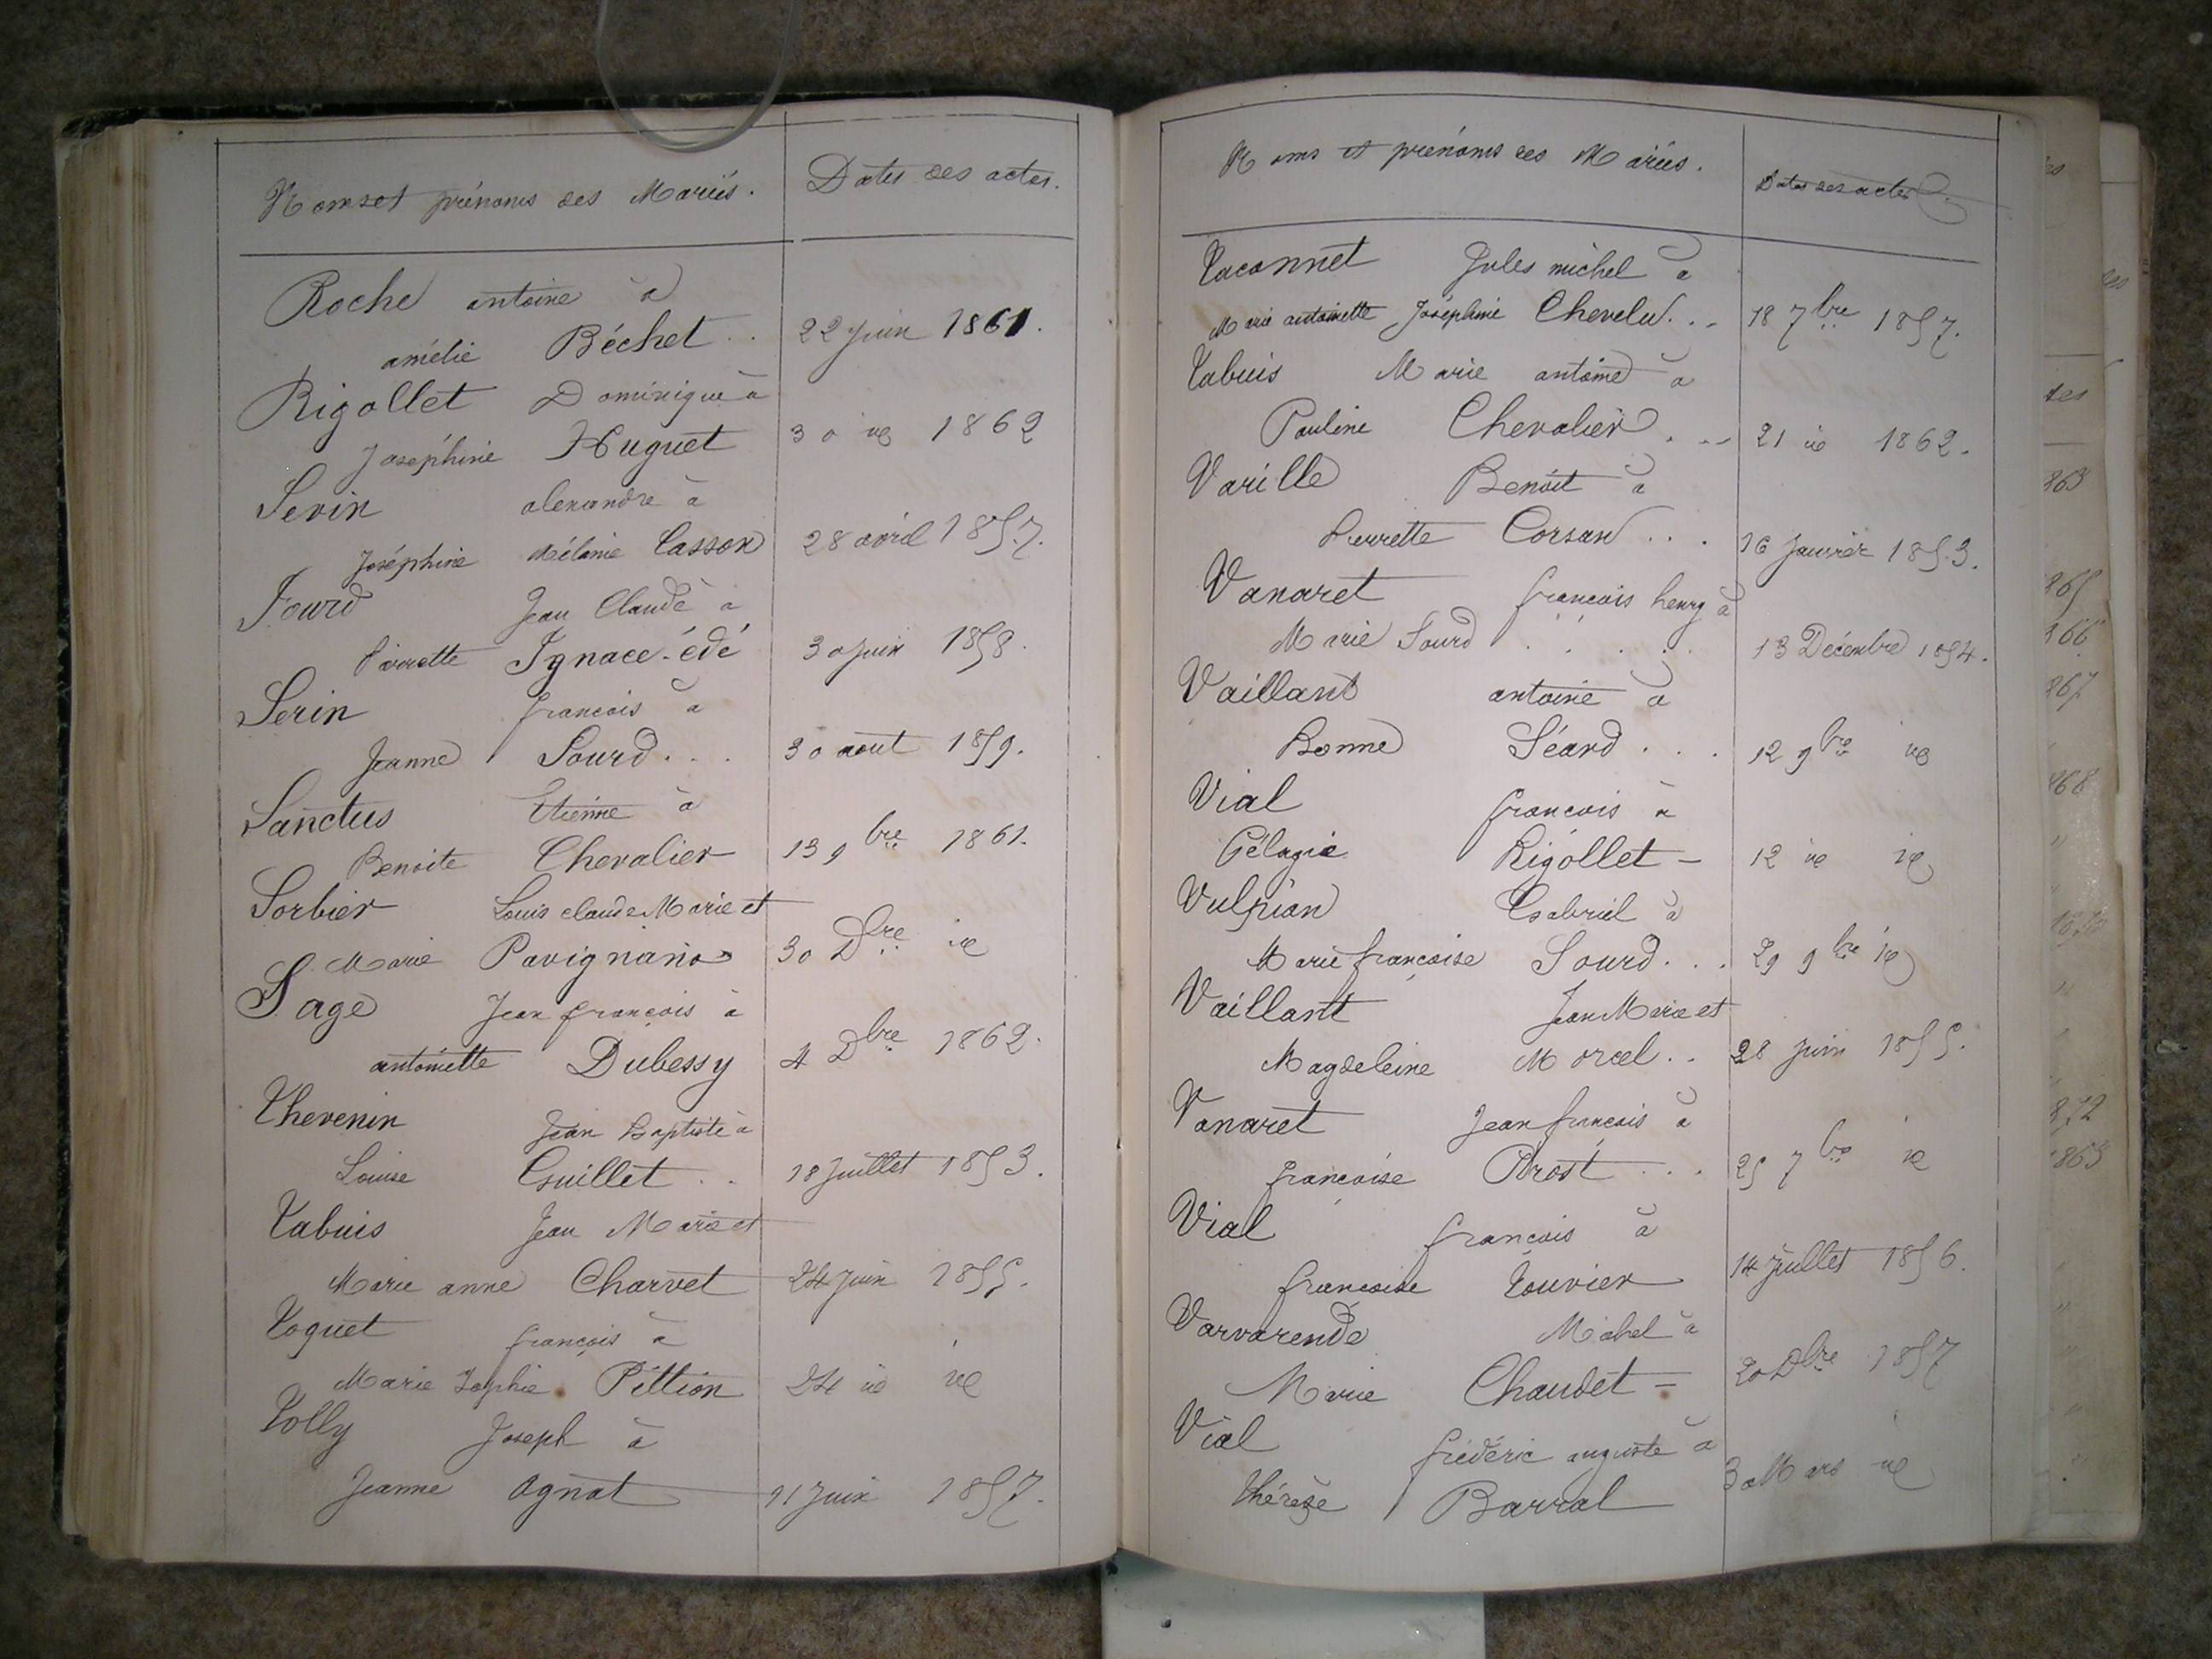 Noms et prénoms des Mariés. Dates des actes.
Roche antoine à
amélie Béchet . . 22 juin 1861.
Rigollet Dominique à
Joséphine Huguet 30 id 1862
Serin alexandre à
Joséphine Mélanie Casson 28 avril 1857.
Sourd Jean Claude à
Pierrette Ignace-édé 30 juin 1858.
Serin francois à
Jeanne Sourd . . . 30 aout 1859.
Sanctus Etienne à
Benoite Chevalier 13 9bre 1861.
Sorbier Louis claude Marie et
Marie Pavignano 30 Dbre id
Sage Jean françois à
antoinette Dubessy 4 Dbre 1862.
Thevenin Jean Baptiste à
Louise Guillet . . 18 Juillet 1853.
Tabuis Jean Marie et
Marie anne Charvet 24 juin 1855.
Toquet françois à
Marie Sophie Pittion 24 id id
Tolly Joseph à
Jeanne Agnat 11 Juin 1857.
Noms et prénoms des Mariés. Dates des actes.
Taconnet Jules michel à
Marie antoinette Joséphine Chevelu . . 18 7bre 1857.
Tabuis Marie antoine à
Pauline Chevalier . . . 21 id 1862.
Varille Benoit à
Pierrette Corsan . . . 16 Janvier 1853.
Vanaret francois henry à
Marie Sourd . . . . . 13 Décembre 1854.
Vaillant antoine à
Bonne Séard . . . 12 9bre id
Vial francois à
Pélagie Rigollet - 12 id id
Vulpian Gabriel à
Marie françoise Sourd . . . 29 9bre id
Vaillant Jean Marie et
Magdeleine Morel . . 28 juin 1855.
Vanaret Jean francois à
françoise Prost . . . 25 7bre id
Vial francois à
francoise Touvier 14 Juillet 1856.
Varvarende Michel à
Marie Chaudet = 20 Dbre 1857
Vial frédéric auguste à
thérèse Barral 30 Mars id